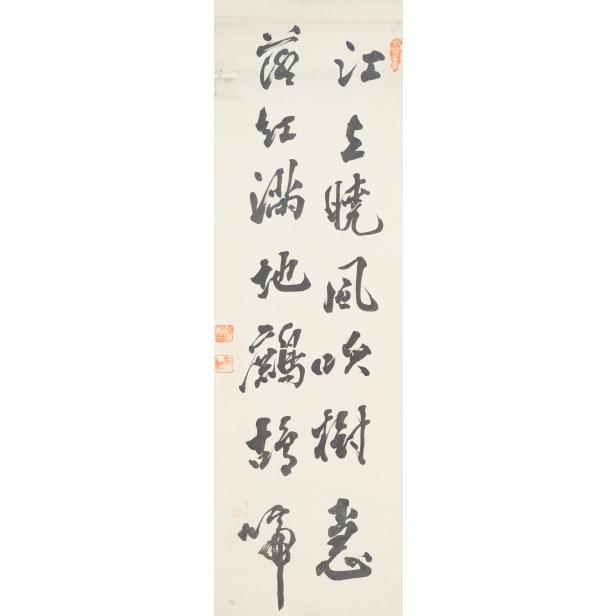 江上曉風吹樹
落紅滿地鷓鴣啼